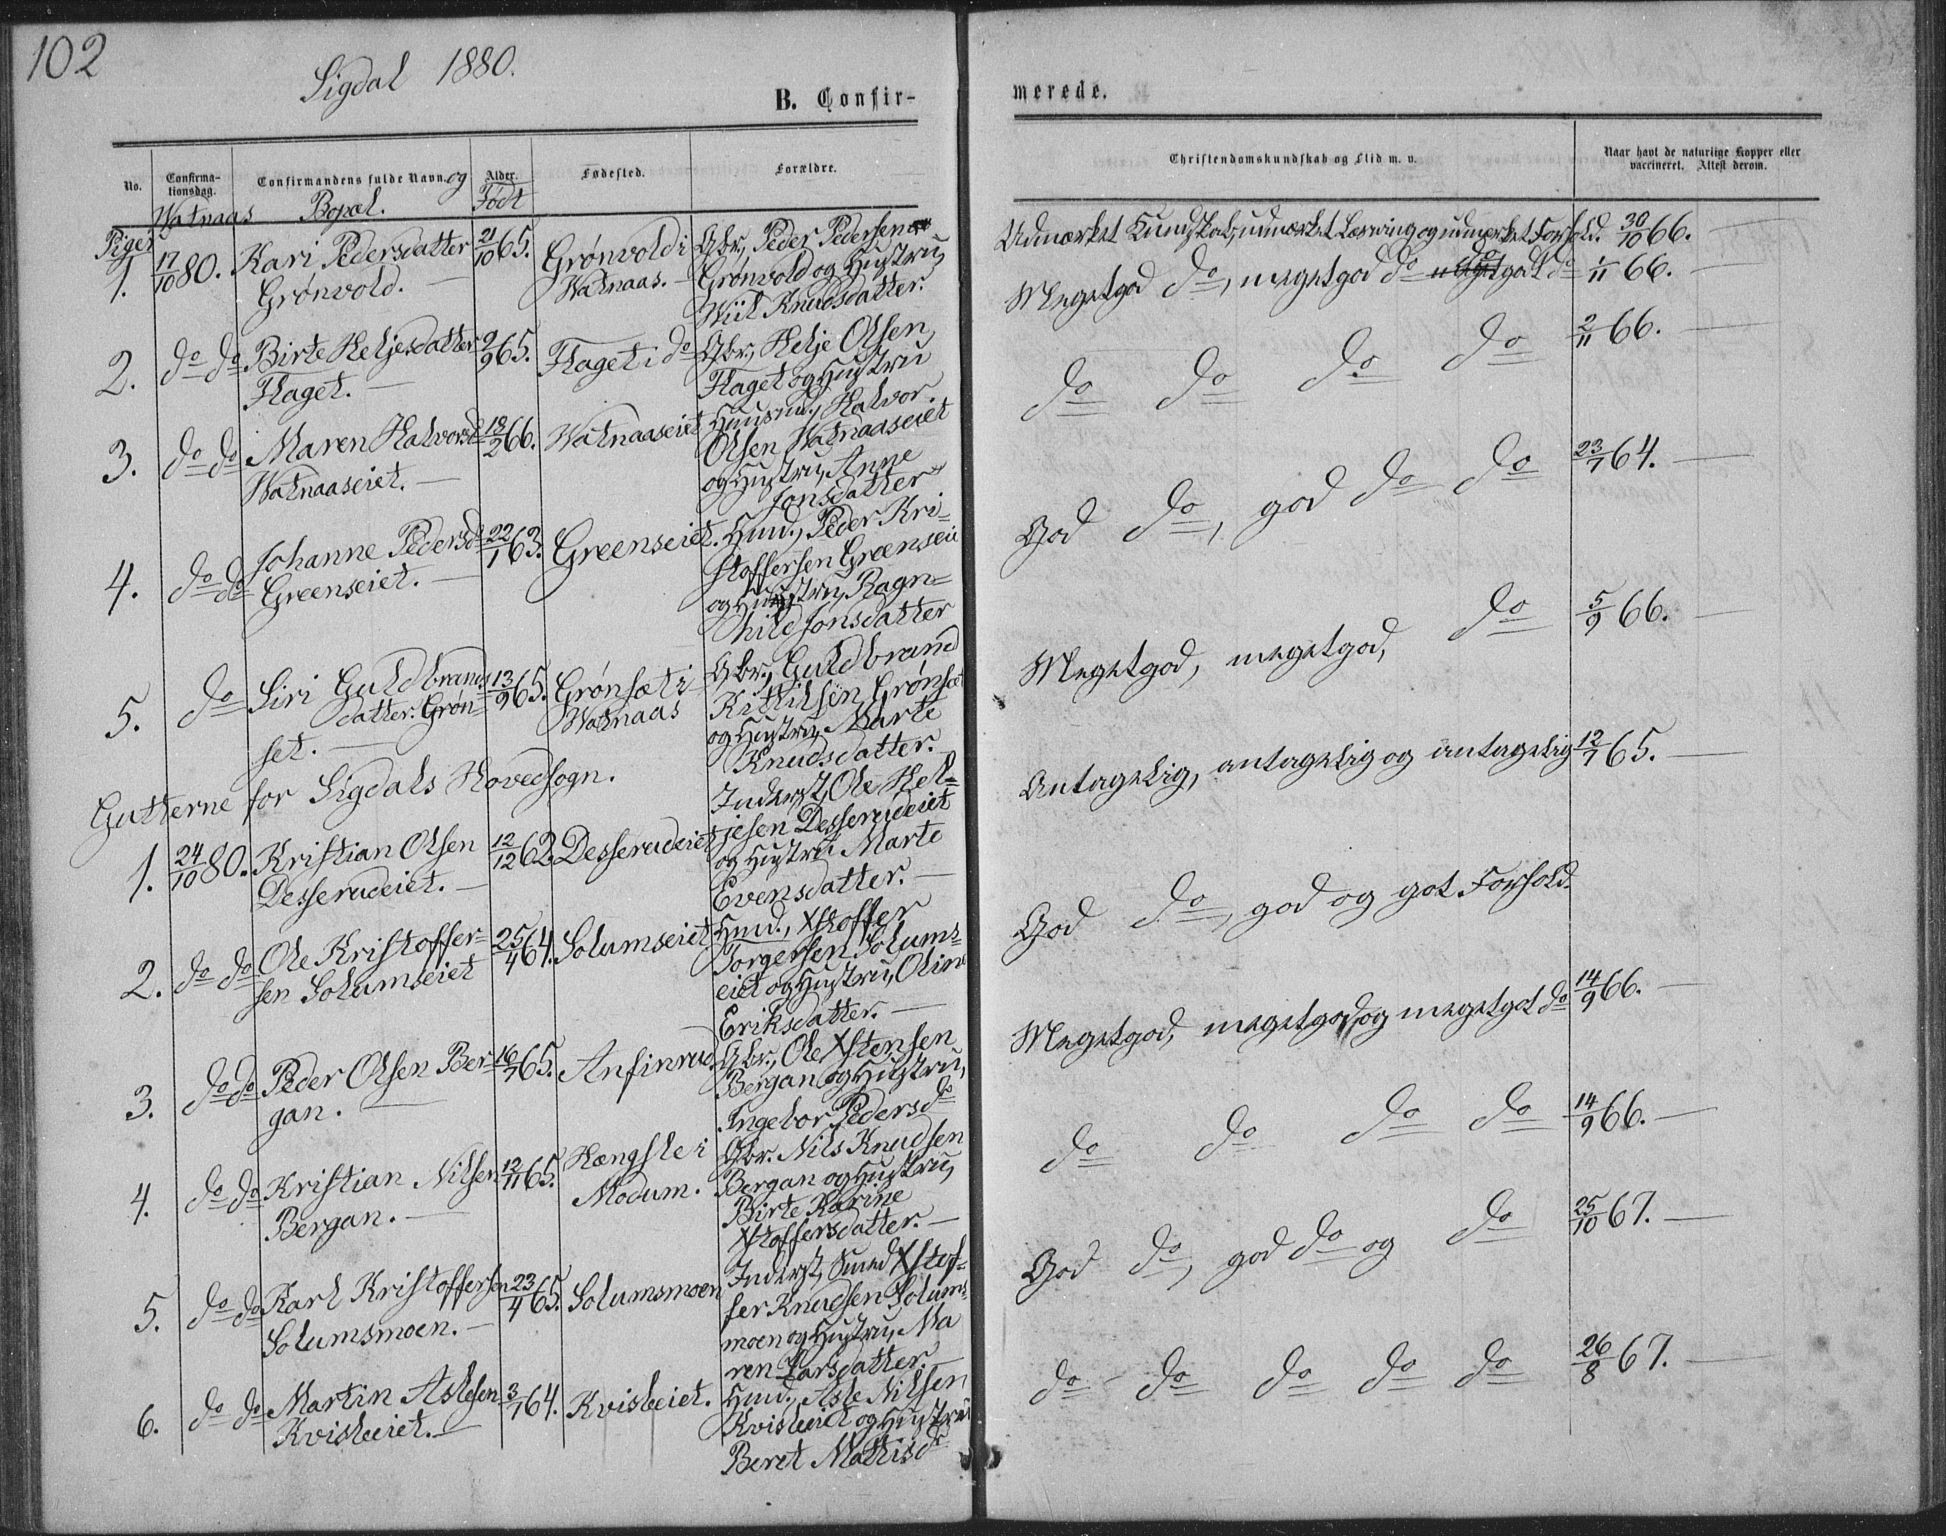 102
Sigdal 1880.
B. Confir-
merede.
No.
Confirma-
tionsdag.
Confirmandens fulde Navn. og
Bopæl.
Alder.
Født
Fødested.
Forældre.
Christendomskundskab og Flid m. v.
Naar havt de naturlige Kopper eller
vaccineret. Attest derom.
Watnaas
Piger
1. 17/10 80. Kari Pedersdatter 21/10 65. Grønvold i Gbr., Peder Pedersen
Grønvold. — Watnaas. — Grønvold og Hustru,
Wiil Knudsdatter.
Udmærket Kundskab, udmærket Læsning og udmærket Forhold. 30/10 66. —
2. do do Birte Heljesdatter 2/9 65. Flaget i do Gbr., Helje Olsen
Flaget. — Flaget og Hustru
Megetgod do, megetgod do megetgodt do 1/11 66. —
3. do do Maren Halvorsd 18/2 66. Watnaaseiet Huusm., Halvor
Watnaaseiet. — Olsen Watnaaseiet
og Hustru, Anne
Jonsdatter
do do do do 2/11 66. —
4. do do Johanne Pedersd 22/1 63. Greenseiet. Husm., Peder Kri-
Greenseiet. — stoffersen Greensei
og Hustru, Ragn-
hild Jonsdatter
God do, god do do 23/7 64. —
5. do Siri Guldbrands 13/9 65. Grønsæt i Gbr., Guldbrand
datter. Grøn- Watnaas Kittilsen Grønsæt
set. — og Hustru, Marte
Knudsdatter.
Megetgod, megetgod, do 5/9 66. —
Gutterne for Sigdals Hovedsogn.
1. 24/10 80. Kristian Olsen 12/12 62. Desserudeiet Inderst, Ole Hel-
Desserudeiet. — jesen Desserudeiet
og Hustru Marte
Evensdatter. —
Antagelig, antagelig og antagelig 12/7 65. —
2. do do Ole Kristoffer- 25/4 64. Solumseiet Husm., Xstoffer
sen Solumseiet Torgersen Solums-
eiet og Hustru, Oline
Eriksdatter. —
God do, god og got Forhold.
3. do do Peder Olsen Ber- 16/7 65. Anfinrud. Gbr., Ole Xstensen
gan. — Bergan og Hustru,
Ingebor Pedersd
Megetgod, megetgod, og megetgot do 14/9 66. —
4. do do Kristian Nilsen 12/11 65. Hængsle i Gbr. Nils Knudsen
Bergan. — Modum. Bergan og Hustru,
Birte Karine
Xstoffersdatter. —
do do do do 14/9 66. —
5. do do Karl Kristoffersen 23/4 65. Solumsmoen Inderst, Smed Xstof-
Solumsmoen. — fer Knudsen Solums-
moen og Hustru, Ma
ren Larsdatter. —
God do, god do og do 25/10 67. —
6. do do Martin Aslesen 3/7 64. Kvisleiet. Husm., Asle Nilsen
Kvisleeiet. — Kvisleiet og Hustru
Beret Mathisd
do do do do do 26/8 67. —